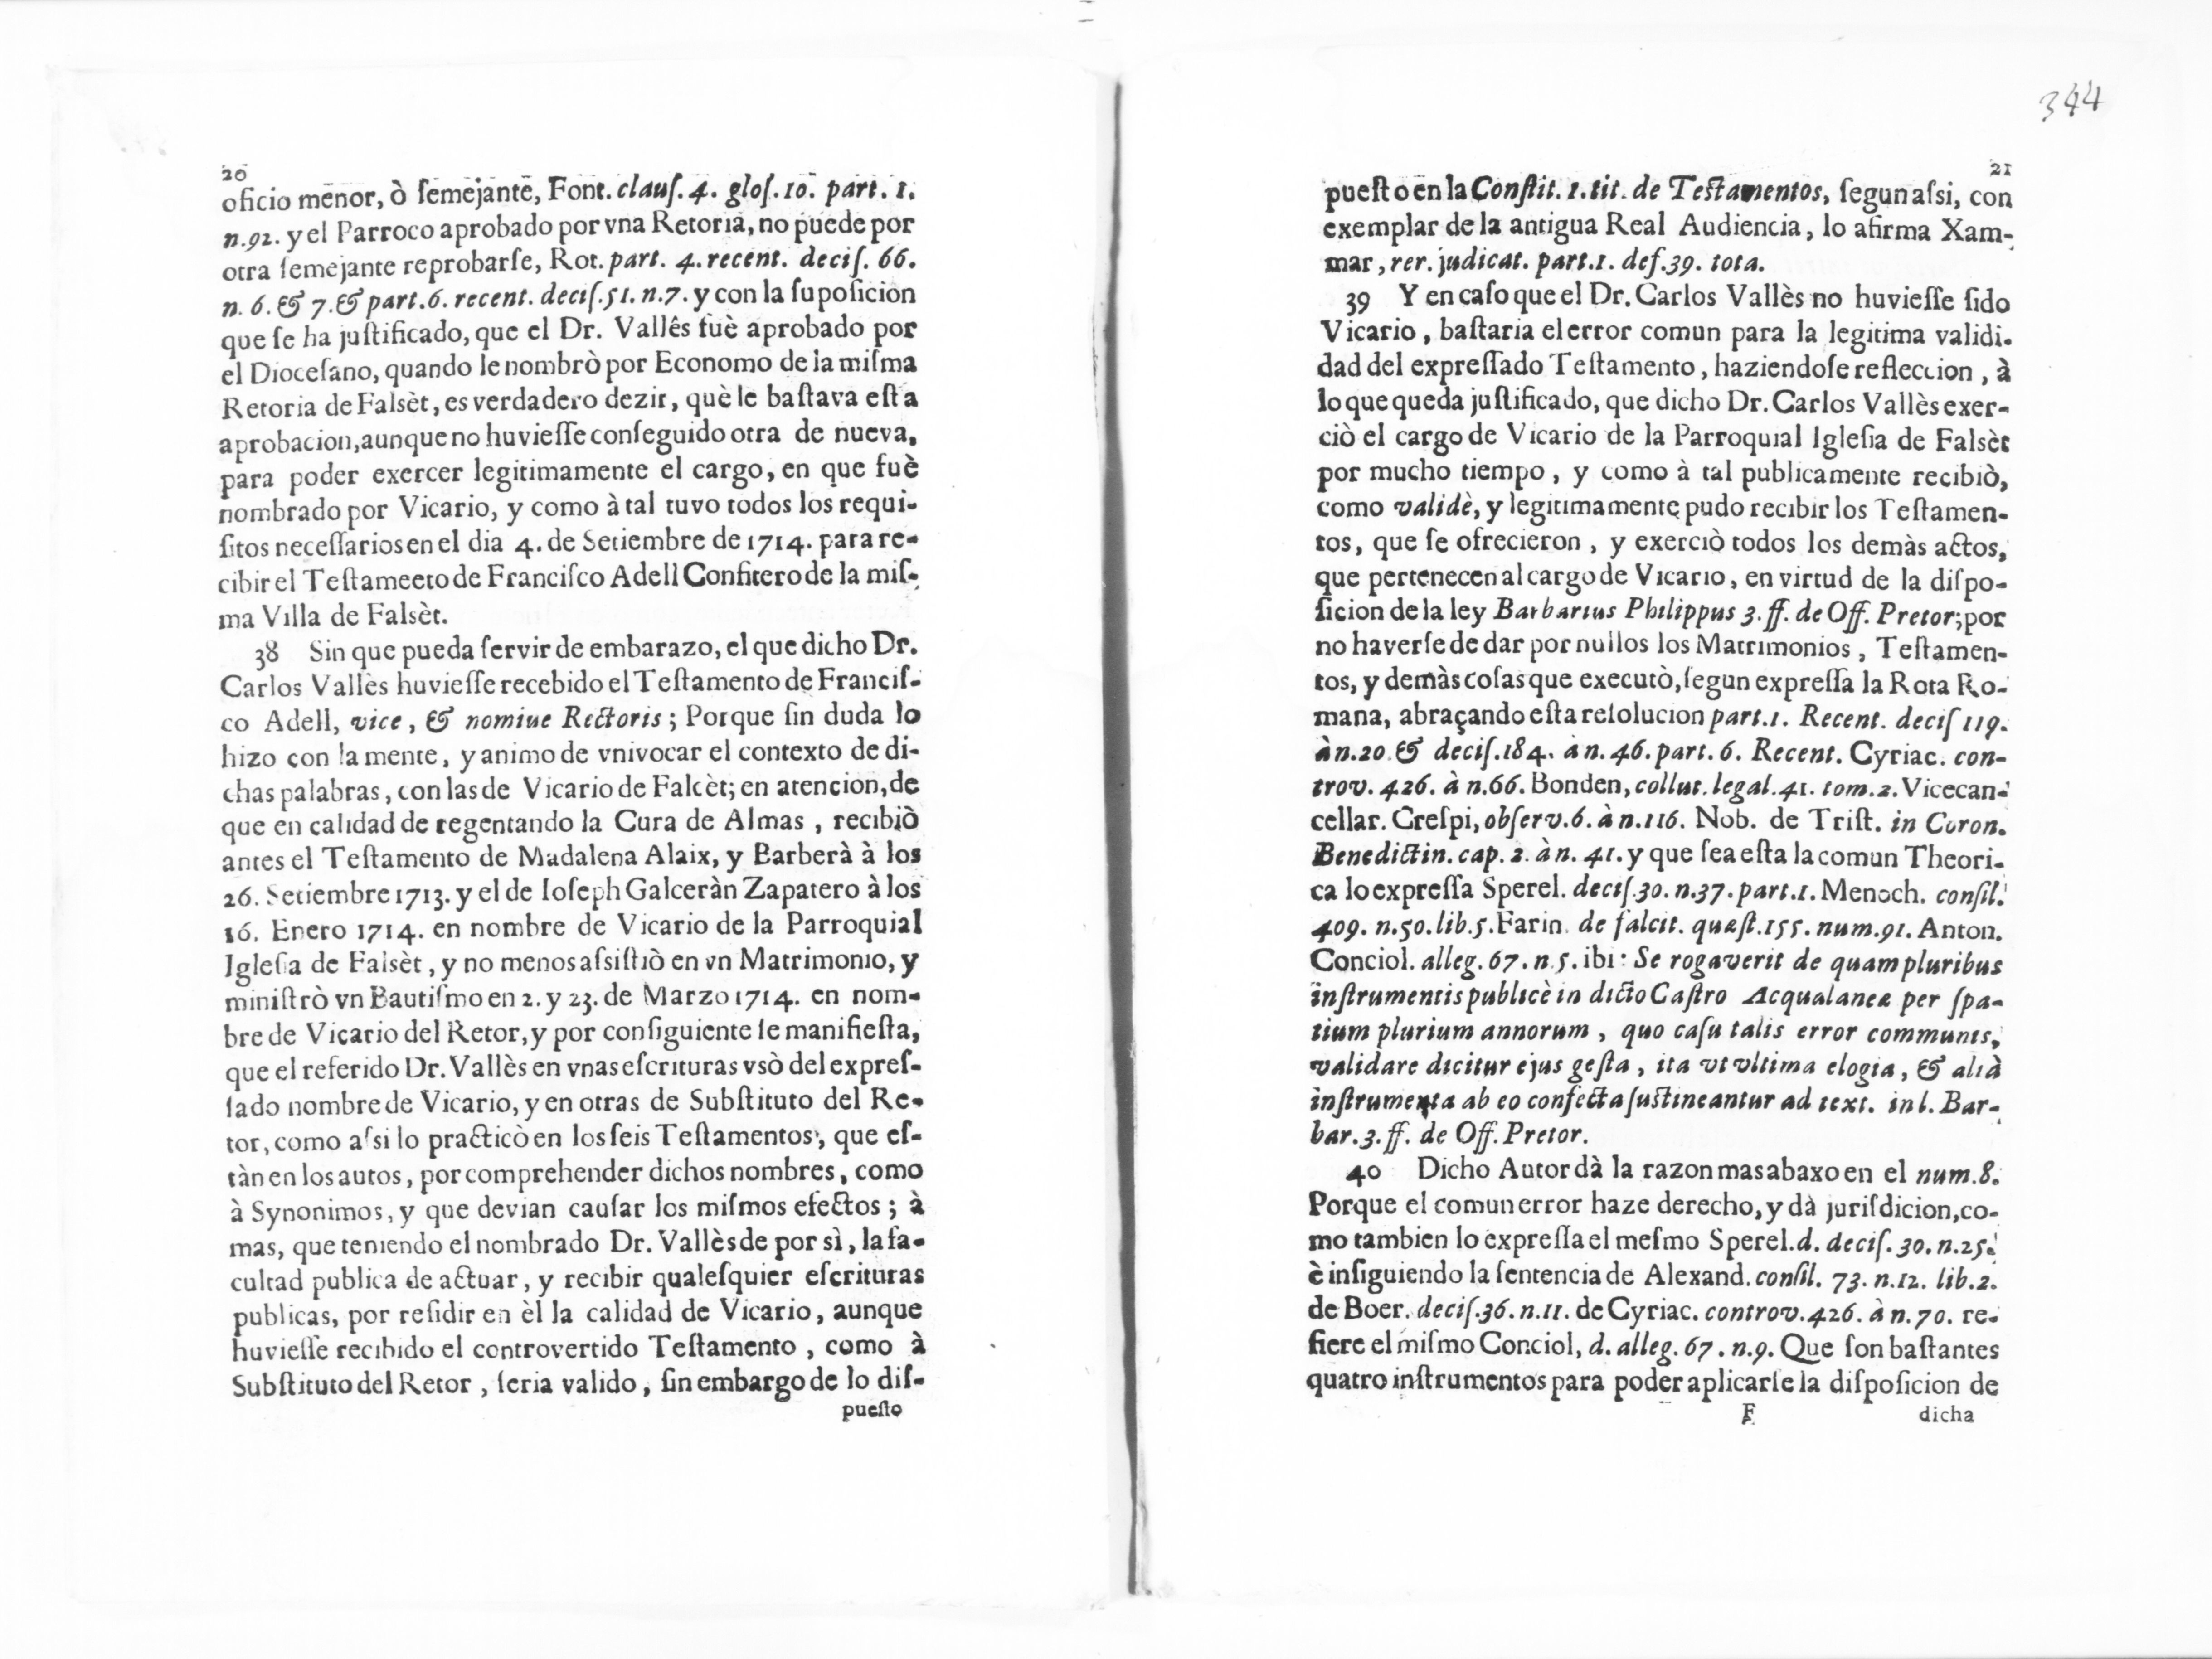 20
oficio menor, ò ſemejante, Font. clauſ. 4. gloſ. 10. part. 1.
n.92. y el Parroco aprobado por vna Retoria, no puede por
otra ſemejante reprobarſe, Rot. part. 4. recent. deciſ. 66.
n. 6. & 7. & part.6. recent. deciſ.51. n.7. y con la ſupoſicion
que ſe ha juſtificado, que el Dr. Vallès fuè aprobado por
el Dioceſano, quando le nombrò por Economo de la miſma
Retoria de Falsèt, es verdadero dezir, què le baſtava eſta
aprobacion, aunque no huvieſſe conſeguido otra de nueva,
para poder exercer legitimamente el cargo, en que fuè
nombrado por Vicario, y como à tal tuvo todos los requi-
ſitos neceſſarios en el dia 4. de Setiembre de 1714. para re-
cibir el Teſtameeto de Franciſco Adell Confitero de la miſ-
ma Villa de Falsèt.
38 Sin que pueda ſervir de embarazo, el que dicho Dr.
Carlos Vallès huvieſſe recebido el Teſtamento de Franciſ-
co Adell, vice, & nomiue Rectoris; Porque ſin duda lo
hizo con la mente, y animo de vnivocar el contexto de di-
chas palabras, con las de Vicario de Falcèt; en atencion, de
que en calidad de regentando la Cura de Almas, recibiò
antes el Teſtamento de Madalena Alaix, y Barberà à los
26. Setiembre 1713. y el de Ioſeph Galceràn Zapatero à los
16. Enero 1714. en nombre de Vicario de la Parroquial
Igleſia de Falsèt, y no menos aſsiſtiò en vn Matrimonio, y
miniſtrò vn Bautiſmo en 2. y 23. de Marzo 1714. en nom-
bre de Vicario del Retor, y por conſiguiente ſe manifieſta,
que el referido Dr. Vallès en vnas eſcrituras vsò del expreſ-
ſado nombre de Vicario, y en otras de Subſtituto del Re-
tor, como aſsi lo practicò en los ſeis Teſtamentos, que eſ-
tàn en los autos, por comprehender dichos nombres, como
à Synonimos, y que devian cauſar los miſmos efectos; à
mas, que teniendo el nombrado Dr. Vallès de por sì, la fa-
cultad publica de actuar, y recibir qualeſquier eſcrituras
publicas, por reſidir en èl la calidad de Vicario, aunque
huvieſſe recibido el controvertido Teſtamento, como à
Subſtituto del Retor, ſeria valido, ſin embargo de lo diſ-
pueſto
344
21
pueſto en la Conſtit. 1. tit. de Teſtamentos, ſegun aſsi, con
exemplar de la antigua Real Audiencia, lo afirma Xam-
mar, rer. judicat. part.1. def.39. tota.
39 Y en caſo que el Dr. Carlos Vallès no huvieſſe ſido
Vicario, baſtaria el error comun para la legitima validi-
dad del expreſſado Teſtamento, haziendoſe refleccion, à
lo que queda juſtificado, que dicho Dr. Carlos Vallès exer-
ciò el cargo de Vicario de la Parroquial Igleſia de Falsèt
por mucho tiempo, y como à tal publicamente recibiò,
como validè, y legitimamente pudo recibir los Teſtamen-
tos, que ſe ofrecieron, y exerciò todos los demàs actos,
que pertenecen al cargo de Vicario, en virtud de la diſpo-
ſicion de la ley Barbarius Philippus 3. ff. de Off. Pretor; por
no haverſe de dar por nullos los Matrimonios, Teſtamen-
tos, y demàs coſas que executò, ſegun expreſſa la Rota Ro-
mana, abraçando eſta reſolucion part.1. Recent. deciſ 119.
à n.20 & deciſ.184. à n. 46. part. 6. Recent. Cyriac. con-
trov. 426. à n.66. Bonden, collut. legal.41. tom.2. Vicecan-
cellar. Creſpi, obſerv.6. à n.116. Nob. de Triſt. in Coron.
Benedictin. cap. 2. à n. 41. y que ſea eſta la comun Theori-
ca lo expreſſa Sperel. deciſ.30. n.37. part.1. Menoch. conſil.
409. n.50. lib.5. Farin. de falcit. quæſt.155. num.91. Anton.
Conciol. alleg. 67. n 5. ibi: Se rogaverit de quampluribus
inſtrumentis publicè in dicto Caſtro Acqualaneæ per ſpa-
tium plurium annorum, quo caſu talis error communis,
validare dicitur ejus geſta, ita vt vltima elogia, & alià
inſtrumenta ab eo confecta ſuſtineantur ad text. in l. Bar-
bar. 3. ff. de Off. Pretor.
40 Dicho Autor dà la razon mas abaxo en el num.8.
Porque el comun error haze derecho, y dà juriſdicion, co-
mo tambien lo expreſſa el meſmo Sperel. d. deciſ. 30. n.25.
è inſiguiendo la ſentencia de Alexand. conſil. 73. n.12. lib.2.
de Boer. deciſ.36. n.11. de Cyriac. controv.426. à n.70. re-
fiere el miſmo Conciol, d. alleg. 67. n.9. Que ſon baſtantes
quatro inſtrumentos para poder aplicarſe la diſpoſicion de
F dicha